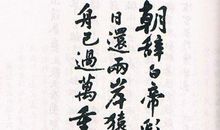 朝辞白帝彩
日還兩岸猿
舟已過萬重